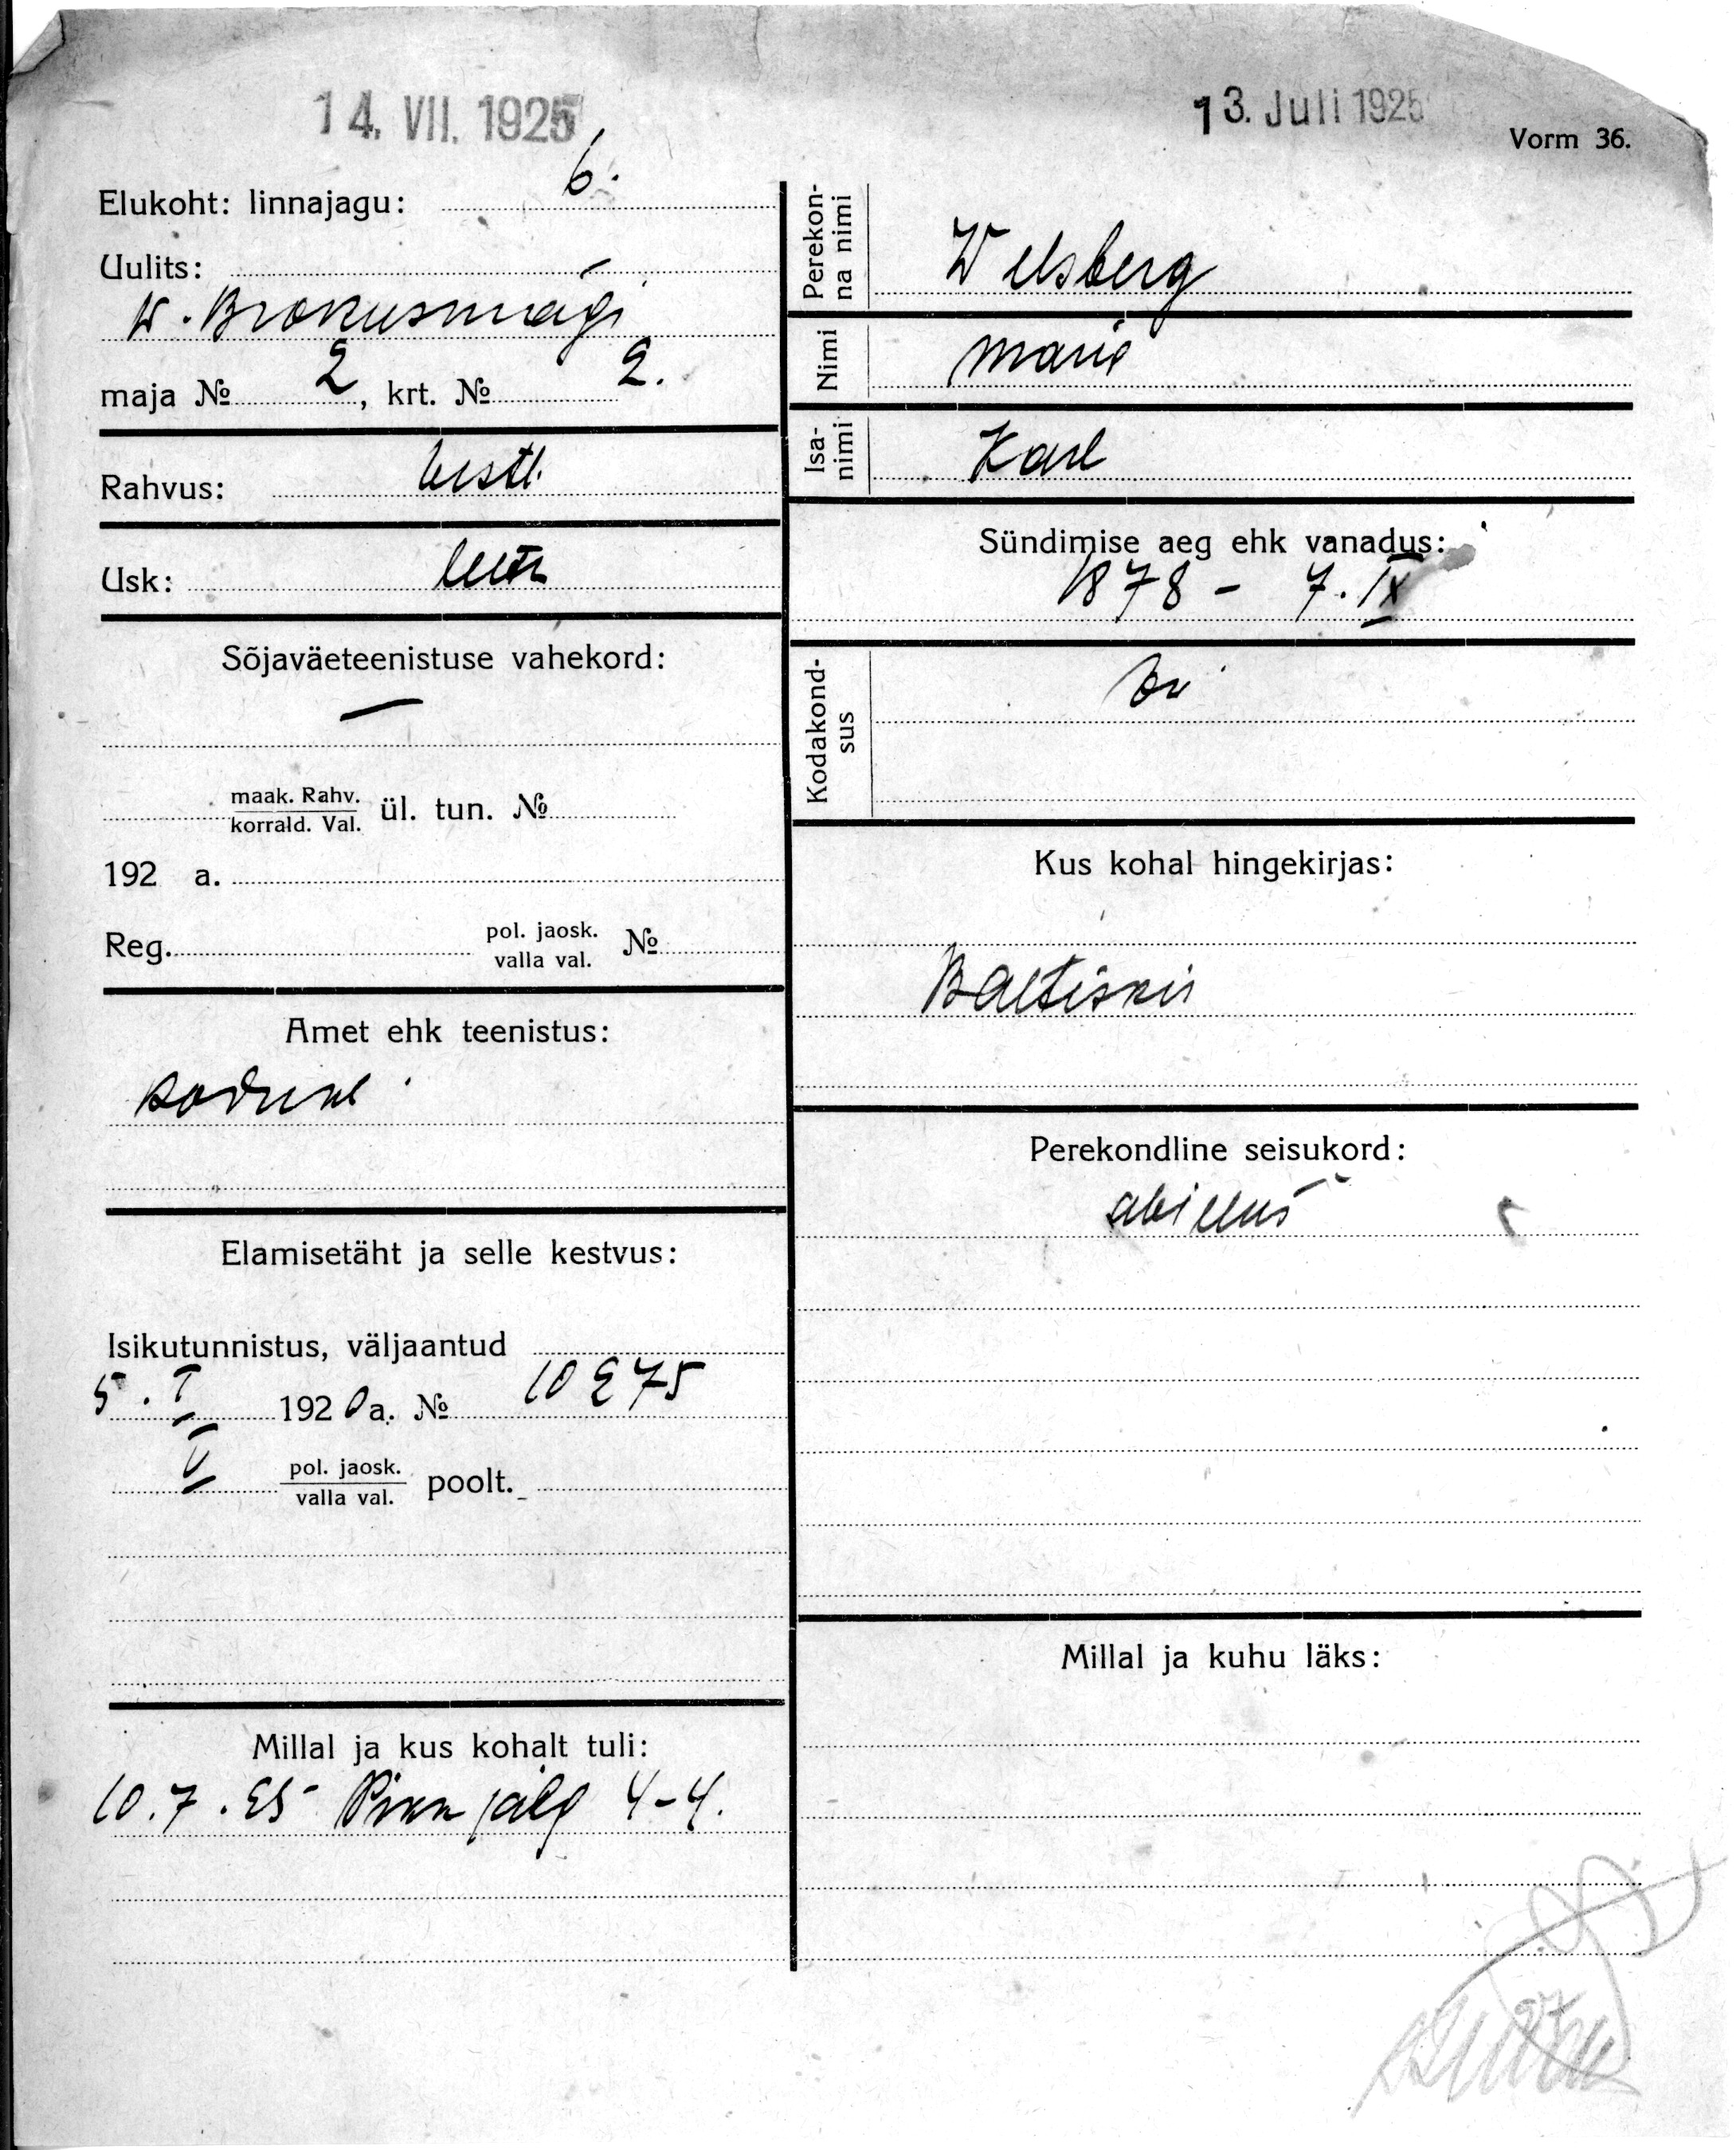 14. VII. 1925
13. Juli 1925
Vorm 36.
Elukoht: linnajagu: 6.
Uulits:
W. Brokusmägi
maja № 2, krt. № 2.
Rahvus: eestl.
Usk: luth
Sõjaväeteenistuse vahekord:
—
maak. Rahv.
korrald. Val.
ül. tun. №
192 a.
Reg. pol. jaosk.
valla val. №
Amet ehk teenistus:
kodune
Elamisetäht ja selle kestvus:
Isikutunnistus, väljaantud
5. I 1920 a. № 10275
V pol. jaosk.
valla val. poolt.
Millal ja kus kohalt tuli:
10.7.25 Pikk jalg 4-4.
Perekon-
na nimi
Welsberg
Nimi Marie
Isa-
nimi
Karl
Sündimise aeg ehk vanadus:
1878 - 7. IX
Kodakond-
sus
Kus kohal hingekirjas:
Baltiskis
Perekondline seisukord:
abielus
Millal ja kuhu läks: